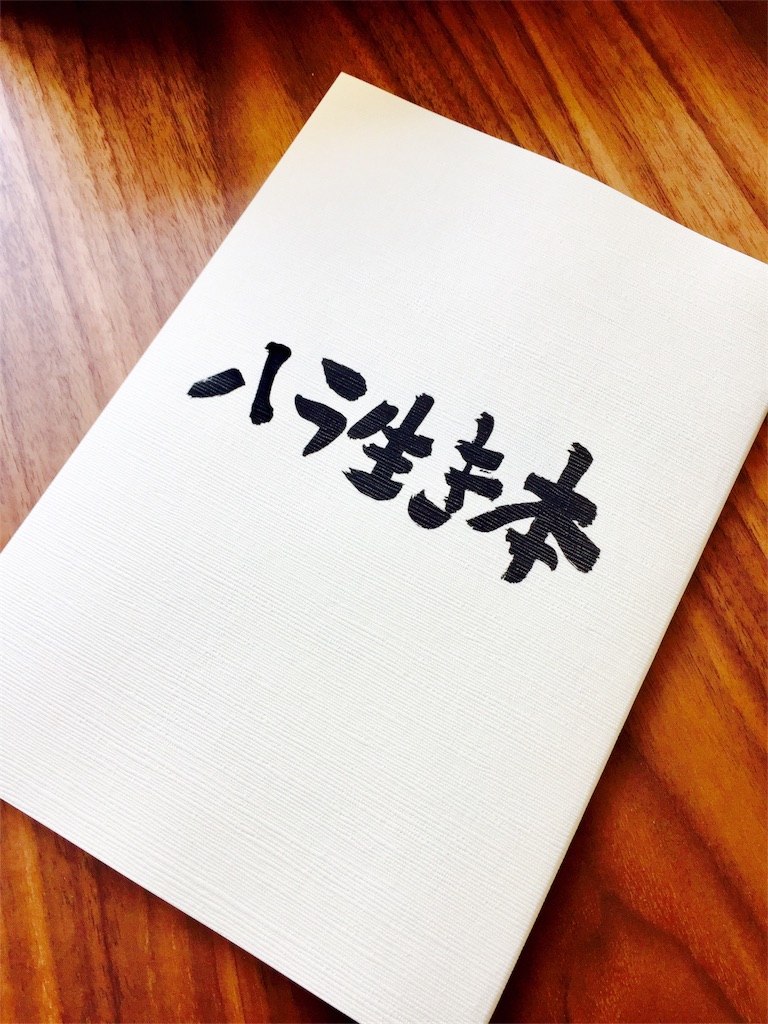 ハラ生き本